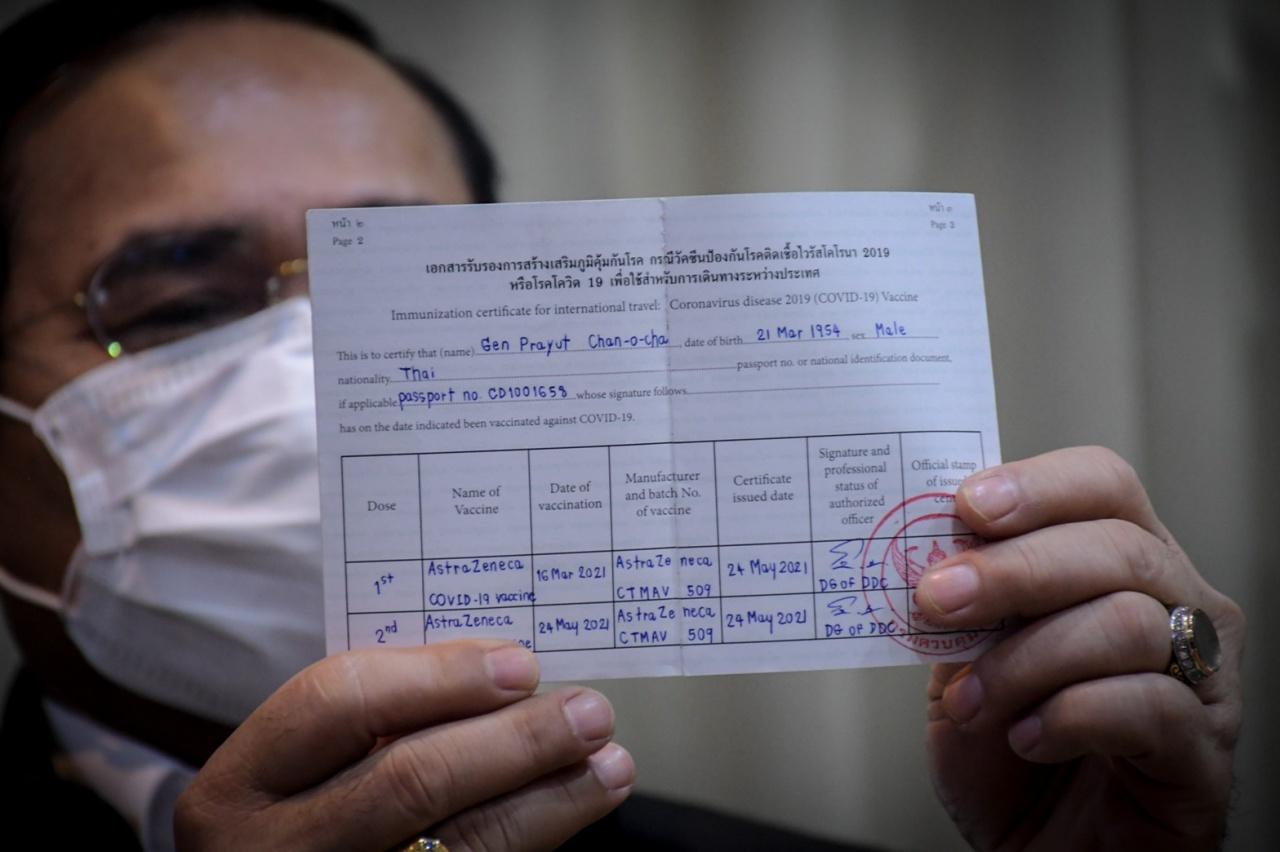 หน้า ๒
Page 2
หน้า ๓
Page 3
เอกสารรับรองการสร้างเสริมภูมิคุ้มกันโรค กรณีวัคซีนป้องกันโรคติดเชื้อไวรัสโคโรนา 2019
หรือโรคโควิด 19 เพื่อใช้สำหรับการเดินทางระหว่างประเทศ
Immunization certificate for international travel: Coronavirus disease 2019 (COVID-19) Vaccine
This is to certify that (name) Gen Prayut Chan-o-cha, date of birth 21 Mar 1954 sex Male
nationality Thai passport no. or national identification document,
if applicable passport no. CD1001658 whose signature follows
has on the date indicated been vaccinated against COVID-19.
Dose
Name of
Vaccine
Date of
vaccination
Manufacturer
and batch No.
of vaccine
Certificate
issued date
Signature and
professional
status of
authorized
officer
Official stamp
of
1st
AstraZeneca
COVID-19 vaccine
16 Mar 2021
AstraZe neca
CTMAV 509
24 May 2021
DG OF DDC
2nd
AstraZeneca
24 May 2021
AstraZe neca
CTMAV 509
24 May 2021
DG OF DDC